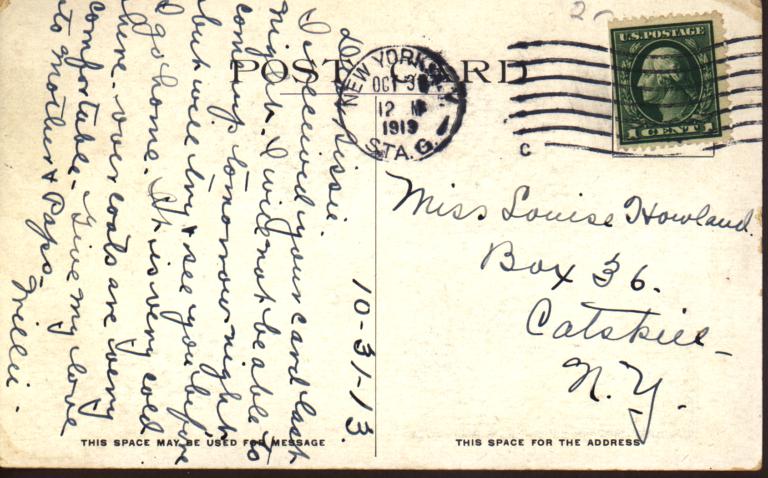 POST CARD
NEW YORK, N.Y.
OCT 31
12 M
1913
STA. G.
C
U.S. POSTAGE
1 CENT 1
2-
10-31-13.
Dear Sissie.
I received your card last
night. I will not be able to
come up tomorrow night
but will try & see you before
I go home. It is very cold
here. Overcoats are very
comfortable. Give my love
to Mother & Papa.
Willie.
Miss Louise Howland.
Box 36.
Catskill
N.Y.
THIS SPACE MAY BE USED FOR MESSAGE
THIS SPACE FOR THE ADDRESS